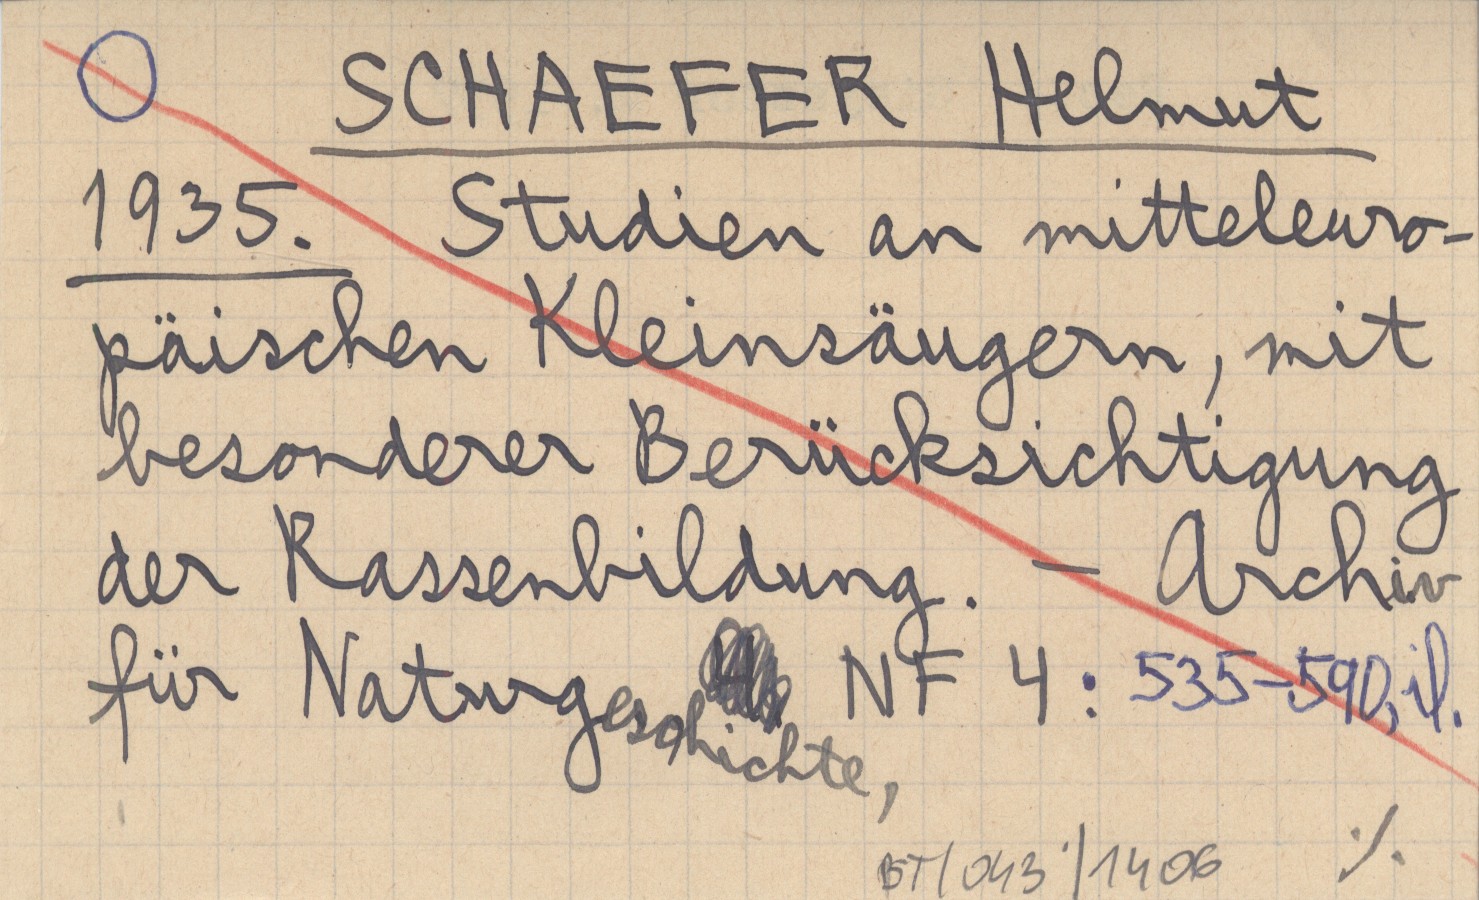 SCHAEFER Helmut
1935. Studien an mitteleuro-
päischen Kleinsäugern, mit
besonderer Berücksichtigung
der Rassenbildung. – Archiv
für Naturgeschichte, NF 4: 535–590, il.
BT/043/1406 ./.